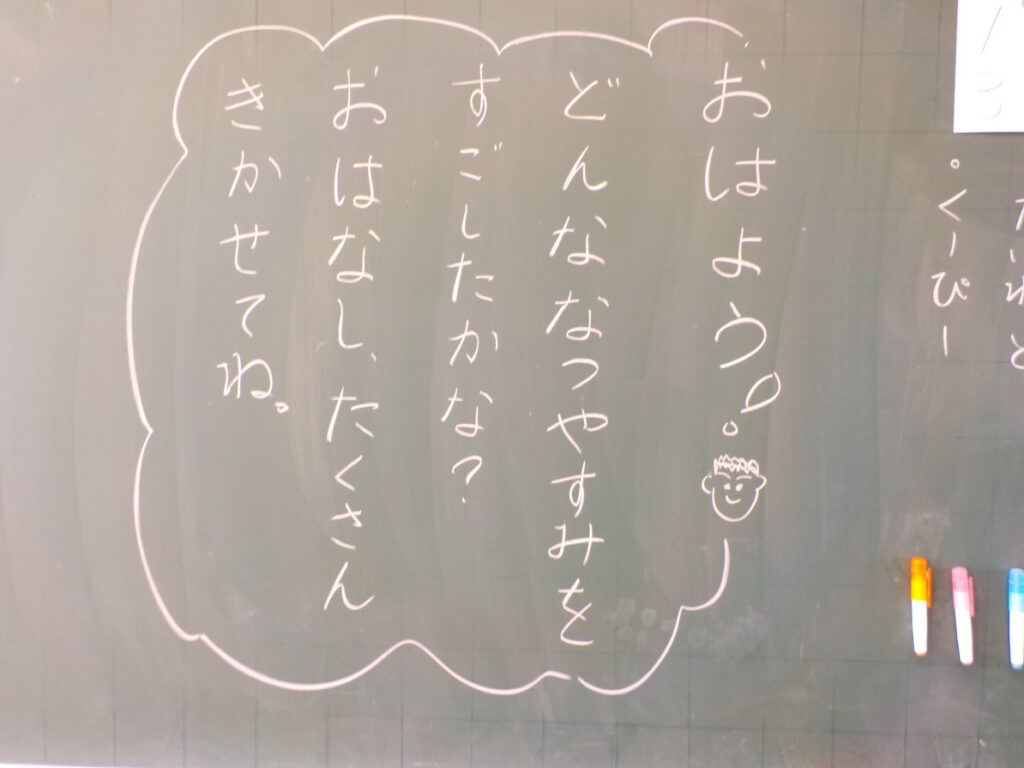 ・くーぴー
おはよう。
どんななつやすみを
すごしたかな？
おはなし、たくさん
きかせてね。